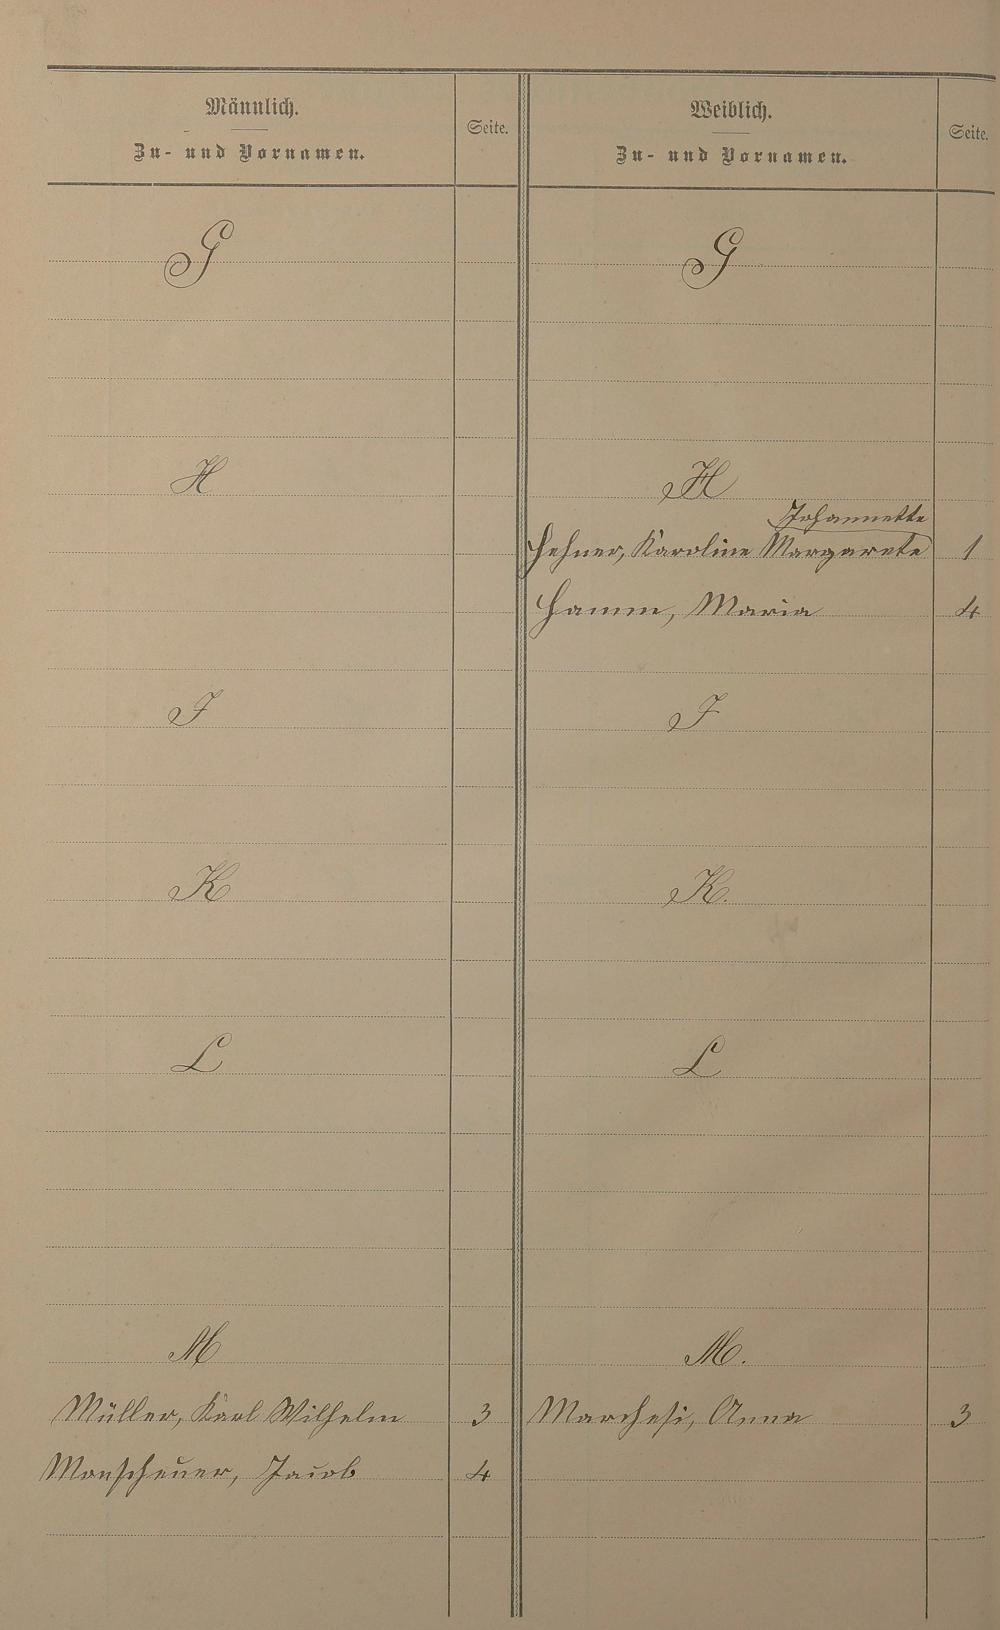 Männlich.
Zu- und Vornamen.
Seite.
Weiblich.
Zu- und Vornamen.
Seite.
G
G
H
H
Johannette
Hehner, Karoline Margarete 1
Hamm, Maria 4
I
I
K
K.
L
L
M
M.
Müller, Karl Wilhelm 3
Marchesi, Anna 3
Monscheuer, Jacob 4